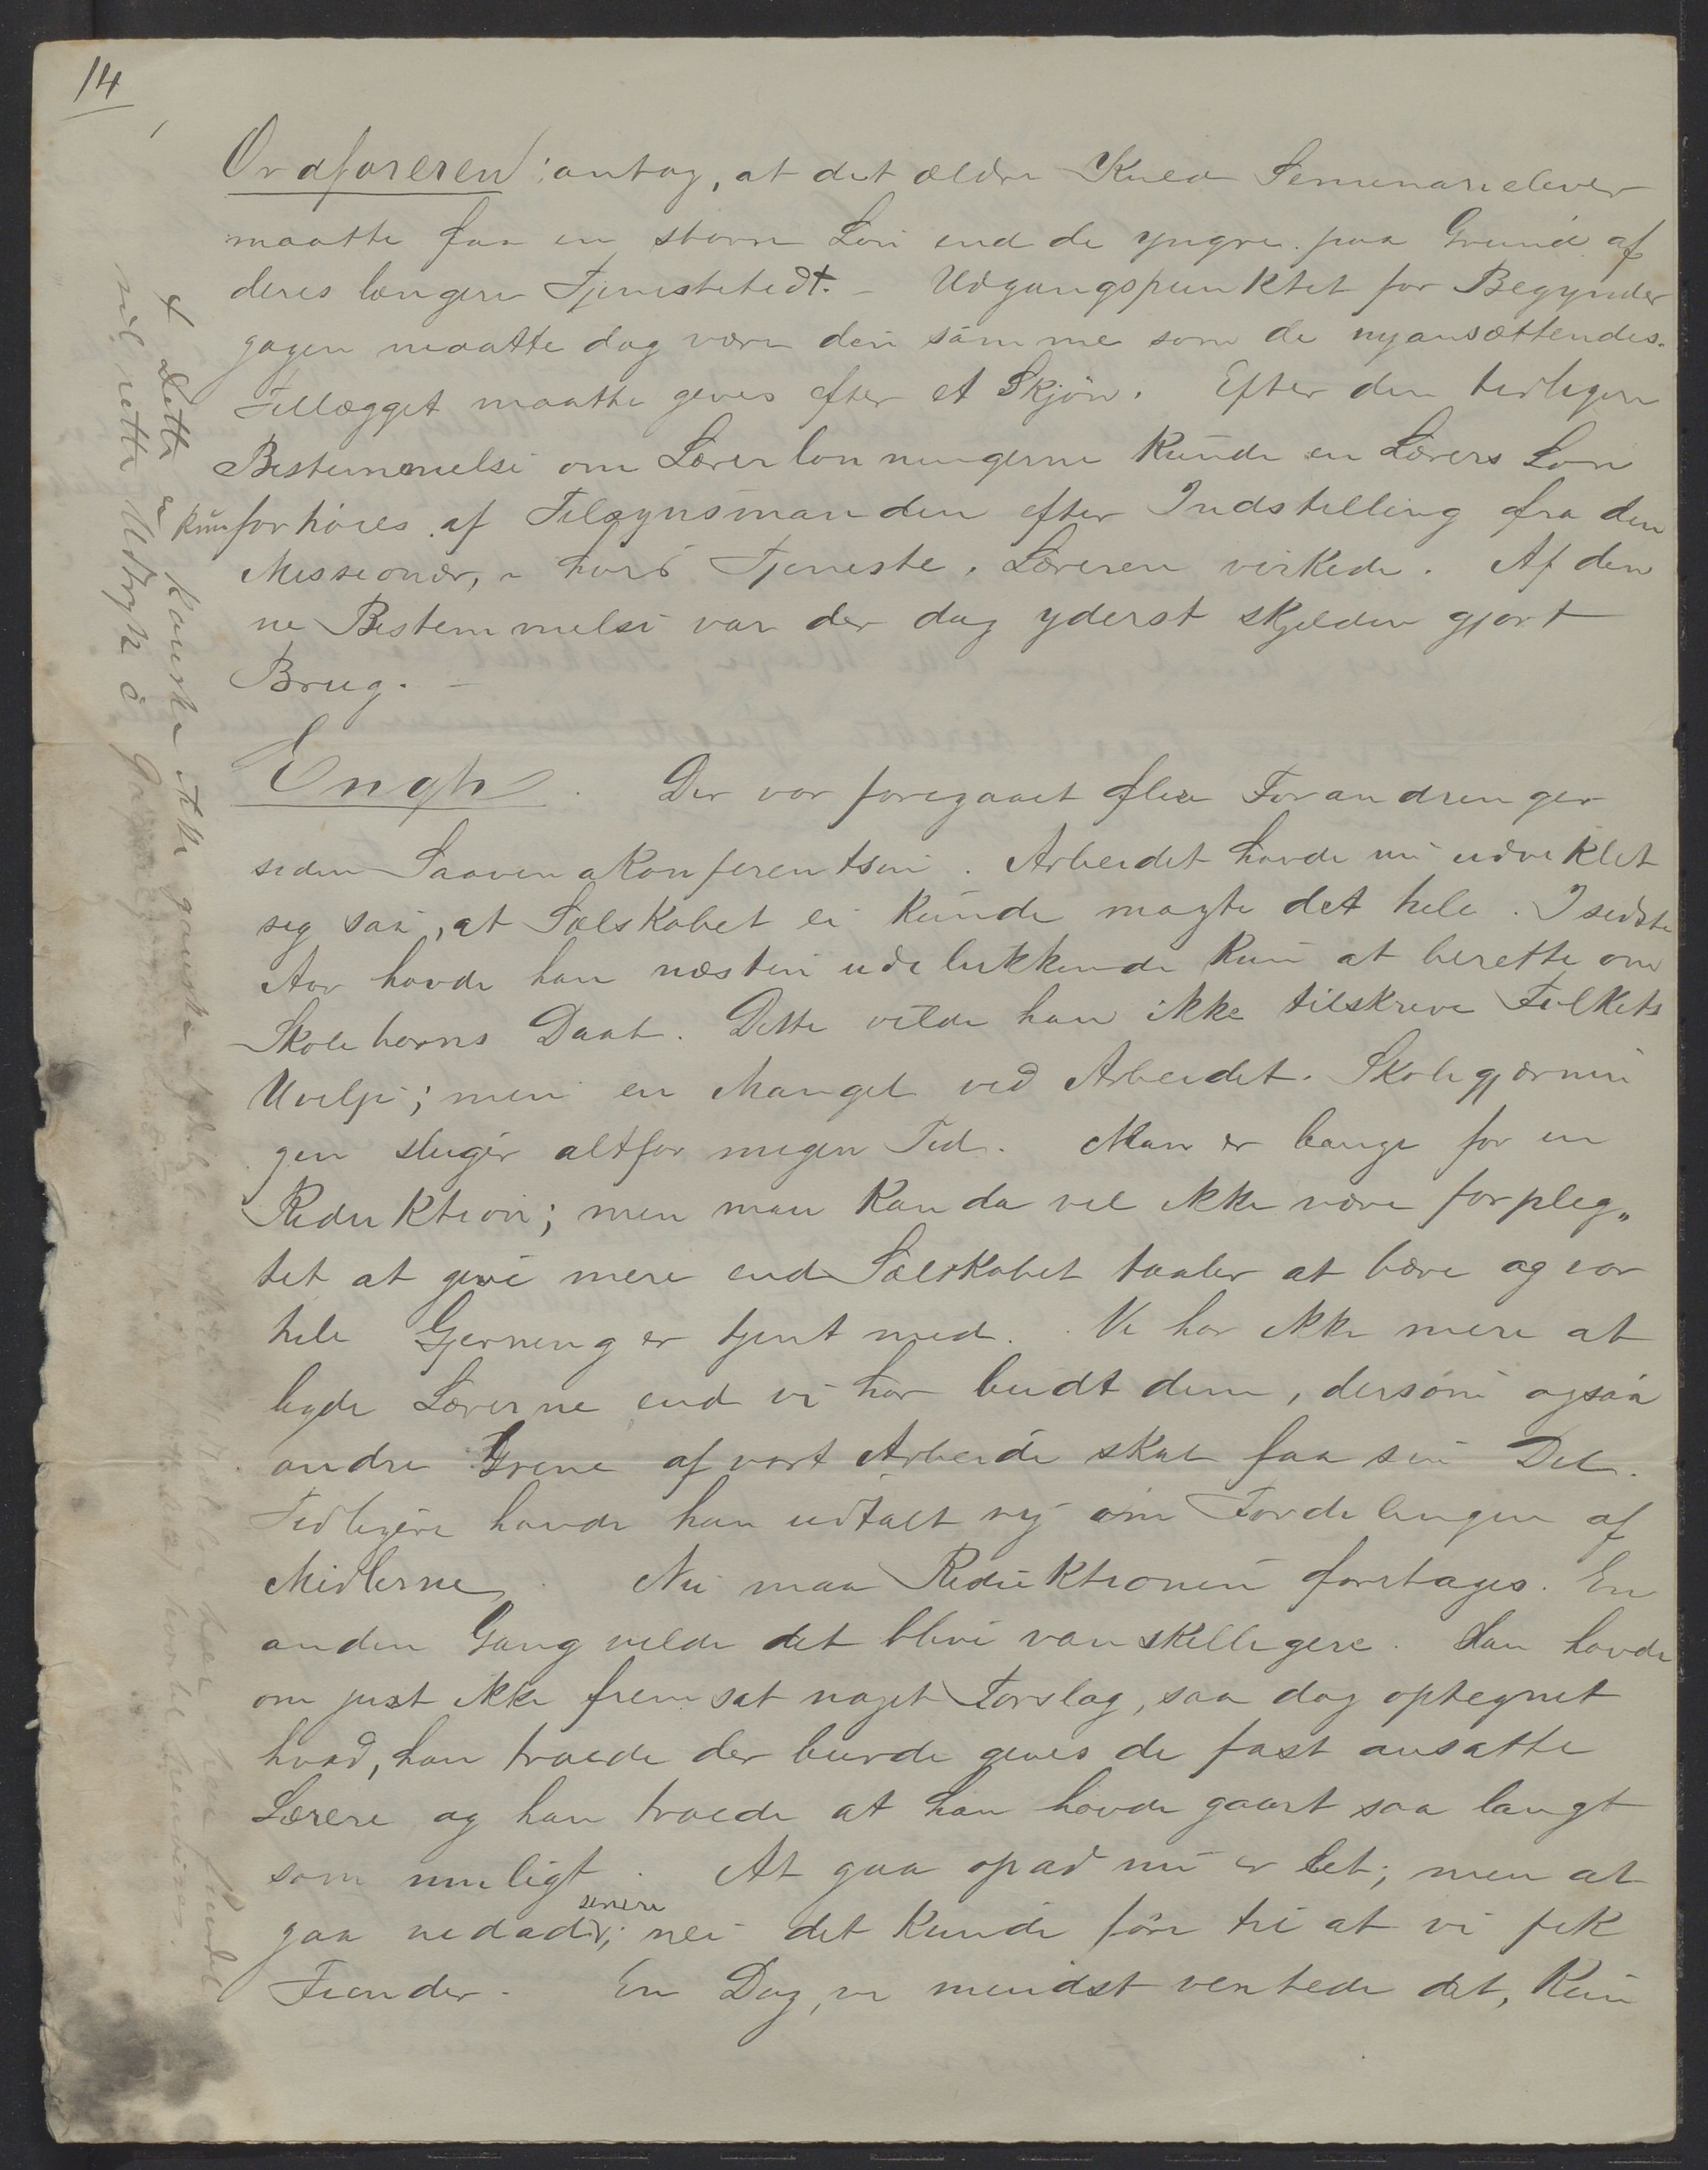 14
Ordføreren: antog, at det ældre Kuld Seminarielever
maatte faa en større Løn end de yngre paa Grund af
deres længere Tjenestetidt. - Udgangspunktet for Begynder
gagen maatte dog være den samme som de nyansættendes.
Tillægget maatte gives efter et Skjøn. Efter den tidligere
Bestemmelse om Lærerlønningerne kunde en Lærers Løn
kun forhøies af Tilsynsmanden efter Indstilling fra den
Missionær, i hvis Tjeneste, Læreren virkede. Af den
ne Bestemmelse var der dog yderst skjelden gjort
Brug. -
Engh. Der var foregaaet flere Forandringer
siden Saavinakonferentsen. Arbeidet havde nu udviklet
sig saa, at Selskabet ei kunde magte det hele. I sidste
Aar havde han næsten udelukkende kun at berette om
Skolebørns Daab. Dette vilde han ikke tilskrive Folkets
Uvilje; men en Mangel ved Arbeidet. Skolegjærnin
gen sluger altfor megen Tid. Man er bange for en
Reduktion; men man kan da vel ikke være forplig„
tet at give mere end Selskabet taaler at bære og vor
hele Gjerning er tjent med. Vi har ikke mere at
byde Lærerne end vi har budt dem, dersom ogsaa
andre Grene af vort Arbeide skal faa sin Del.
Tidligere havde han udtalt sig om Fordelingen af
Midlerne. Nu maa Reduktionen foretages. En
anden Gang vilde det blive vanskelligere. Han havde
om just ikke fremsat noget Forslag, saa dog optegnet
hvad, han troede der burde gives de fast ansatte
Lærere og han troede at han havde gaaet saa langt
som muligt. At gaa opad nu er let; men at
gaa nedad senere; nei det kunde føre til at vi fik
Fiender. En Dag, vi mindst ventede det, kun
Dette er kanske ikke ganske
rette Udtryk